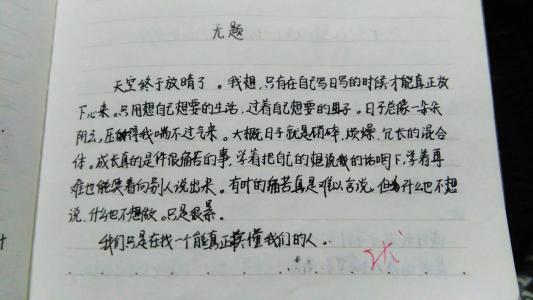 无题
天空终于放晴了。我想,只有在自己写日写的时候才能真正放
下心来。只用想自己想要的生活,过着自己想要的日子。日子总像一朵灰
阴云,压得我喘不过气来。大概日子就是琐碎、烦燥、冗长的混合
体。成长真的是件很痛苦的事,学着把自己的想说我的话咽下,学着再
难也能笑着向别人说出来。有时的痛苦真是难以言说,但为什么也不想
说,什么也不想做。只是很累。
我们只是在找一个能真正读懂我们的人。
优